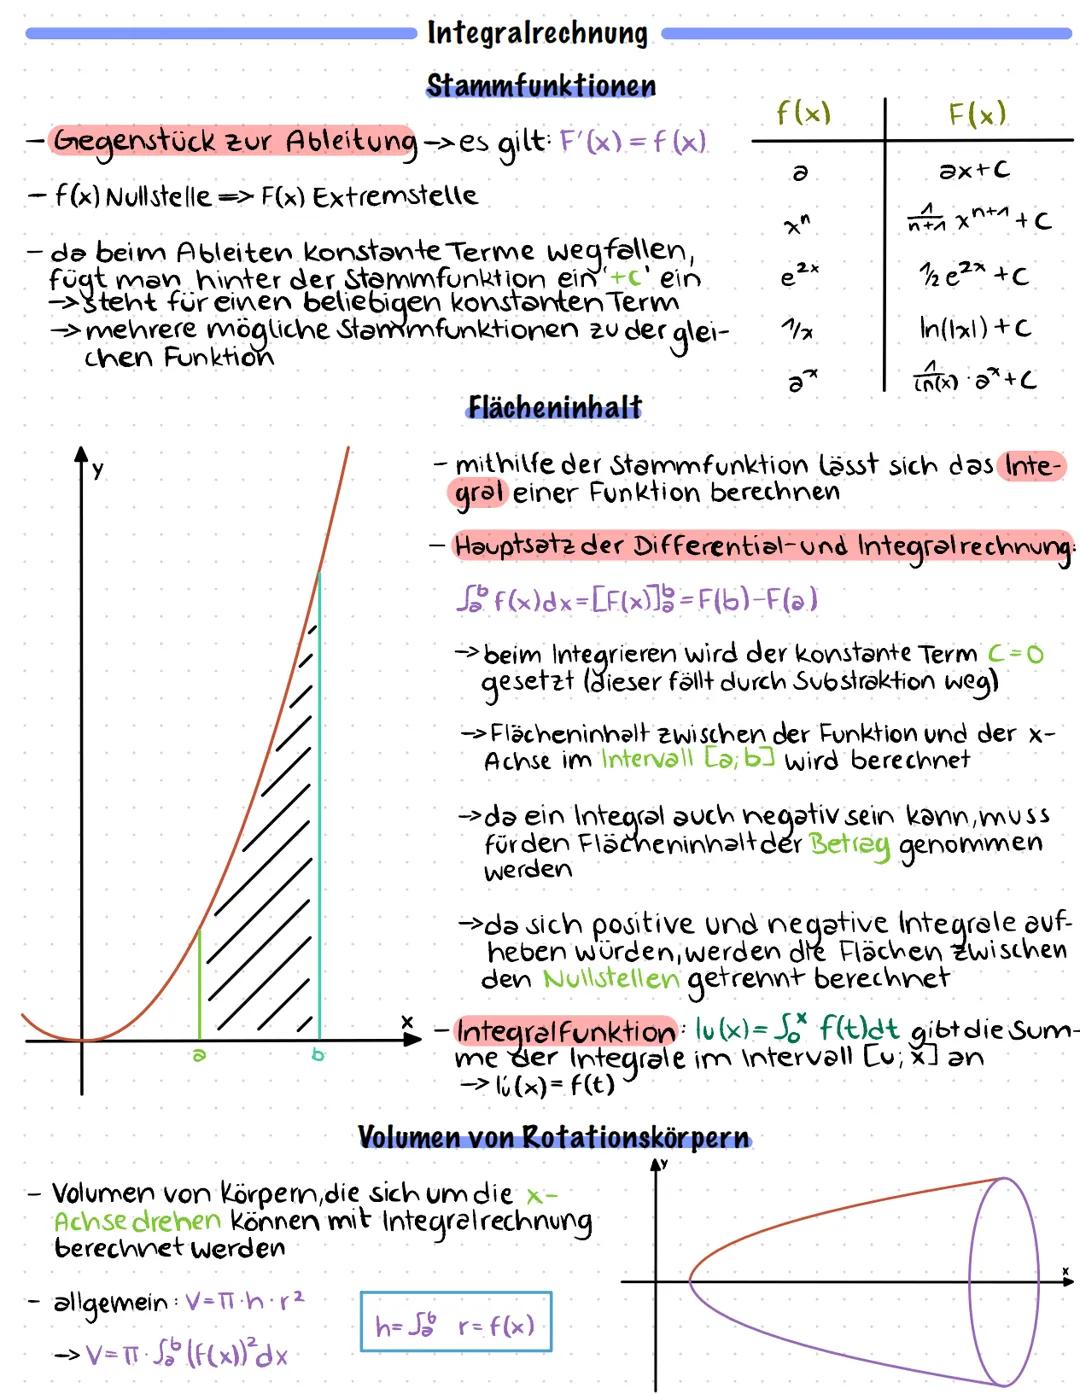 Integralrechnung
Stammfunktionen
- Gegenstück zur Ableitung -> es gilt: F'(x) = f(x)
- f(x) Nullstelle => F(x) Extremstelle
- da beim Ableiten konstante Terme wegfallen,
fügt man hinter der Stammfunktion ein '+C' ein
-> steht für einen beliebigen konstanten Term
-> mehrere mögliche Stammfunktionen zu der glei-
chen Funktion
f(x) F(x)
a ax+C
xⁿ 1/(n+1) xⁿ⁺¹ + C
e²ˣ ½ e²ˣ + C
1/x ln(|x|) + C
aˣ 1/ln(x) · aˣ + C
Flächeninhalt
y
x
a b
- mithilfe der Stammfunktion lässt sich das Inte-
gral einer Funktion berechnen
- Hauptsatz der Differential- und Integralrechnung:
∫ₐᵇ f(x)dx = [F(x)]ₐᵇ = F(b) - F(a)
-> beim Integrieren wird der konstante Term C=0
gesetzt (dieser fällt durch Substraktion weg)
-> Flächeninhalt zwischen der Funktion und der x-
Achse im Intervall [a;b] wird berechnet
-> da ein Integral auch negativ sein kann, muss
für den Flächeninhalt der Betrag genommen
werden
-> da sich positive und negative Integrale auf-
heben würden, werden die Flächen zwischen
den Nullstellen getrennt berechnet
- Integralfunktion: Iu(x) = ∫₀ˣ f(t)dt gibt die Sum-
me der Integrale im Intervall [u; x] an
-> Iu'(x) = f(t)
Volumen von Rotationskörpern
- Volumen von Körpern, die sich um die x-
Achse drehen können mit Integralrechnung
berechnet werden
- allgemein: V = π · h · r²
-> V = π · ∫ₐᵇ (f(x))² dx
h = ∫ₐᵇ r = f(x)
y
x